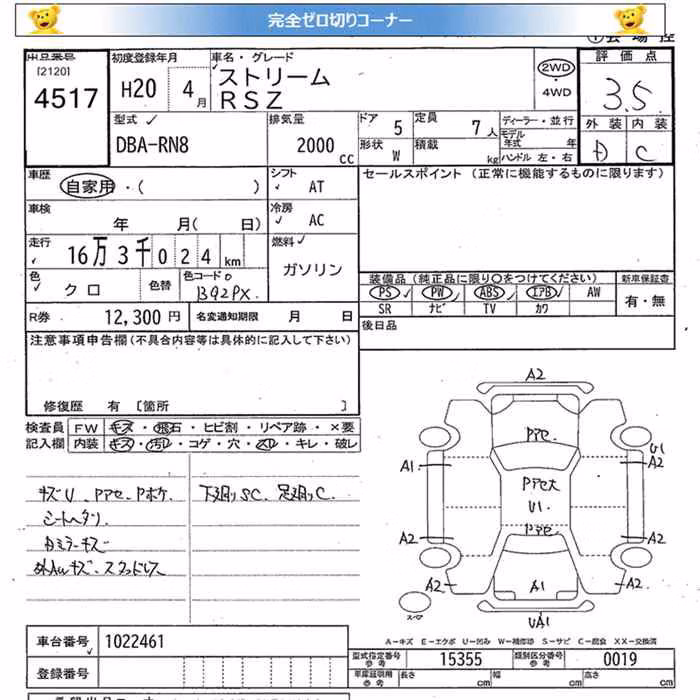 完全ゼロ切りコーナー
出品番号 初度登録年月 車名・グレード 評価点
[2120]
4517 H20 4月 ストリーム 2WD 3.5
RSZ ・4WD
型式 排気量 ドア 5 定員 7人 ディーラー・並行 外装 内装
DBA-RN8 2000cc 形状 W 積載 kg モデル年式 年 D C
ハンドル 左・右
車歴 自家用・( ) シフト AT セールスポイント(正常に機能するものに限ります)
車検 年 月( 日) 冷房 AC
走行 16万3千024km 燃料 ガソリン
色 クロ 色替 色コードNo B92PX. 装備品(純正品に限り○をつけてください) 新車保証書
PS PW ABS エアB AW 有・無
SR ナビ TV カワ
R券 12,300円 名変通知期限 月 日 後日品
注意事項申告欄(不具合内容等は具体的に記入して下さい)
修復歴 有 [箇所 ]
検査員 FW キズ・飛石・ヒビ割・リペア跡・×要
記入欄 内装 キズ・汚レ・コゲ・穴・スレ・キレ・破レ
キズU、Pアセ、Pボケ、 下廻りSC、足廻りC、
シートヘタリ、
ミラーキズ
外AWキズ、スタッドレス
A2
Pアセ
U1
A1 A2
Pアセ大
U1
Pアセ
A2 A2
A2 A1 A2
スペア UA1
A-キズ E-エクボ U-凹み W-補修跡 S-サビ C-腐食 XX-交換済
車台番号 1022461
型式指定番号 参考 15355 類別区分番号 参考 0019
登録番号 車庫証明用 参考 長さ cm 幅 cm 高さ cm